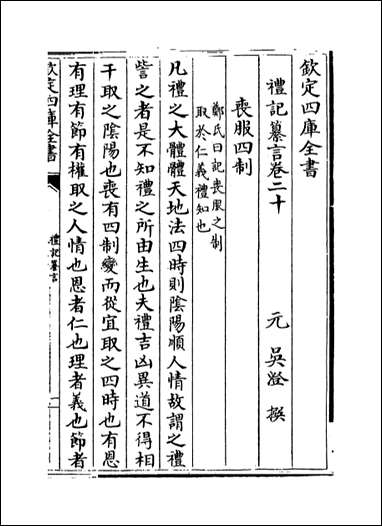 欽定四庫全書
禮記纂言卷二十
元 吳澄 撰
喪服四制
鄭氏曰記喪服之制
取於仁義禮知也
凡禮之大體體天地法四時則陰陽順人情故謂之禮
訾之者是不知禮之所由生也夫禮吉凶異道不得相
干取之陰陽也喪有四制變而從宜取之四時也有恩
有理有節有權取之人情也恩者仁也理者義也節者
欽定四庫全書
禮記纂言